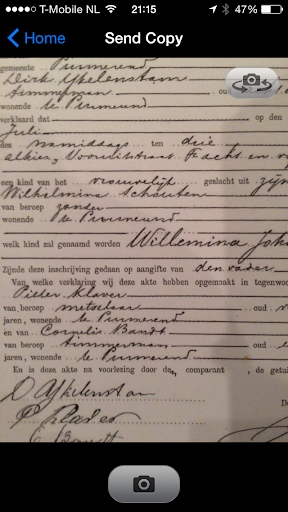 T-Mobile NL 21:15 47%
Home Send Copy
gemeente Purmerend
Dirk IJkelenstam
timmerman oud
wonende te Purmerend
verklaard dat op den
Juli
des namiddags ten drie
alhier,
een kind van het vrouwelijk geslacht uit zijn
Wilhelmina Schouten
van beroep zonder
wonende te Purmerend
welk kind zal genaamd worden Willemina Joh
Zijnde deze inschrijving gedaan op aangifte van den vader
Van welke verklaring wij deze akte hebben opgemaakt in tegenwoo
Pieter Klaver
van beroep metselaar oud
jaren, wonende te Purmerend
en van Cornelis Bandt
van beroep timmerman oud
jaren, wonende te Purmerend
En is deze akte na voorlezing door de, comparant, de getui
D IJkelenstam
P Klaver